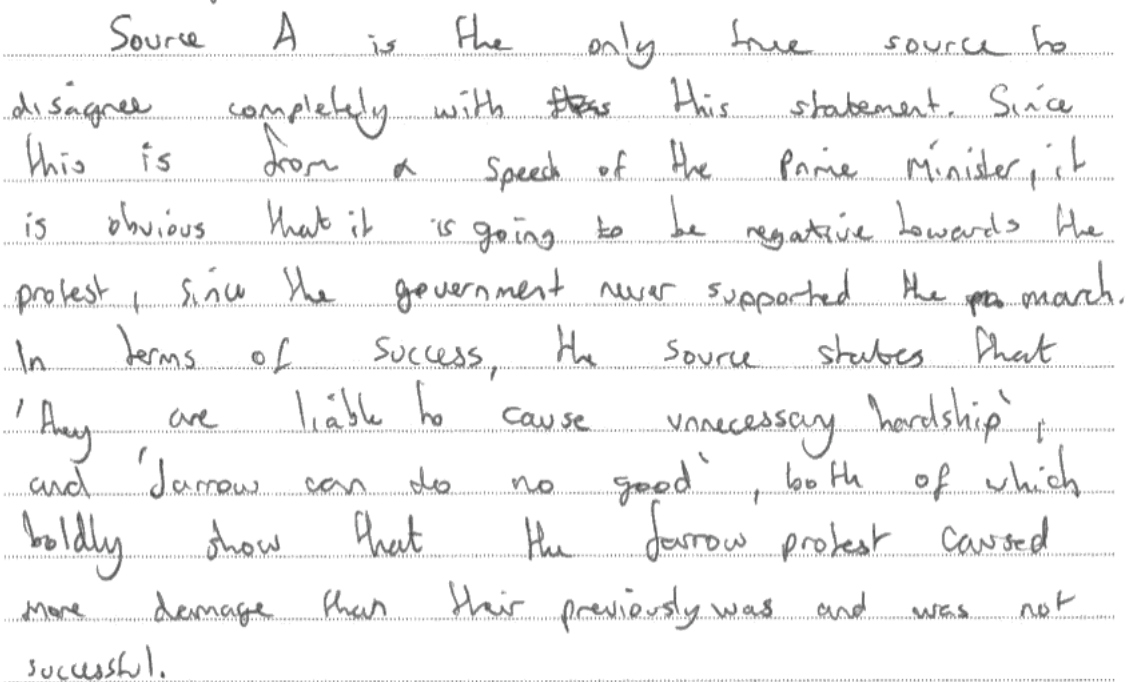 Source A is the only true source to
disagree completely with this statement. Since
this is from a speech of the Prime Minister, it
is obvious that it is going to be negative towards the
protest, since the government never supported the march.
In terms of success, the source states that
'they are liable to cause unnecessary hardship',
and 'Jarrow can do no good', both of which
boldly show that the Jarrow protest caused
more damage than their previously was and was not
successful.